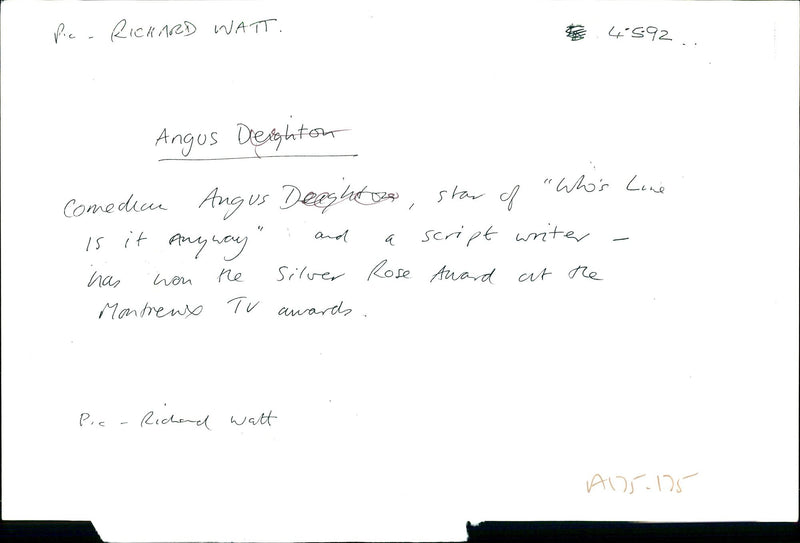 Pic - RICHARD WATT.
4.592..
Angus Deighton
Comedian Angus Deighton, star of "Who's Line
is it Anyway" and a script writer -
has won the Silver Rose Award at the
Montreux TV awards.
Pic - Richard Watt
A175-175